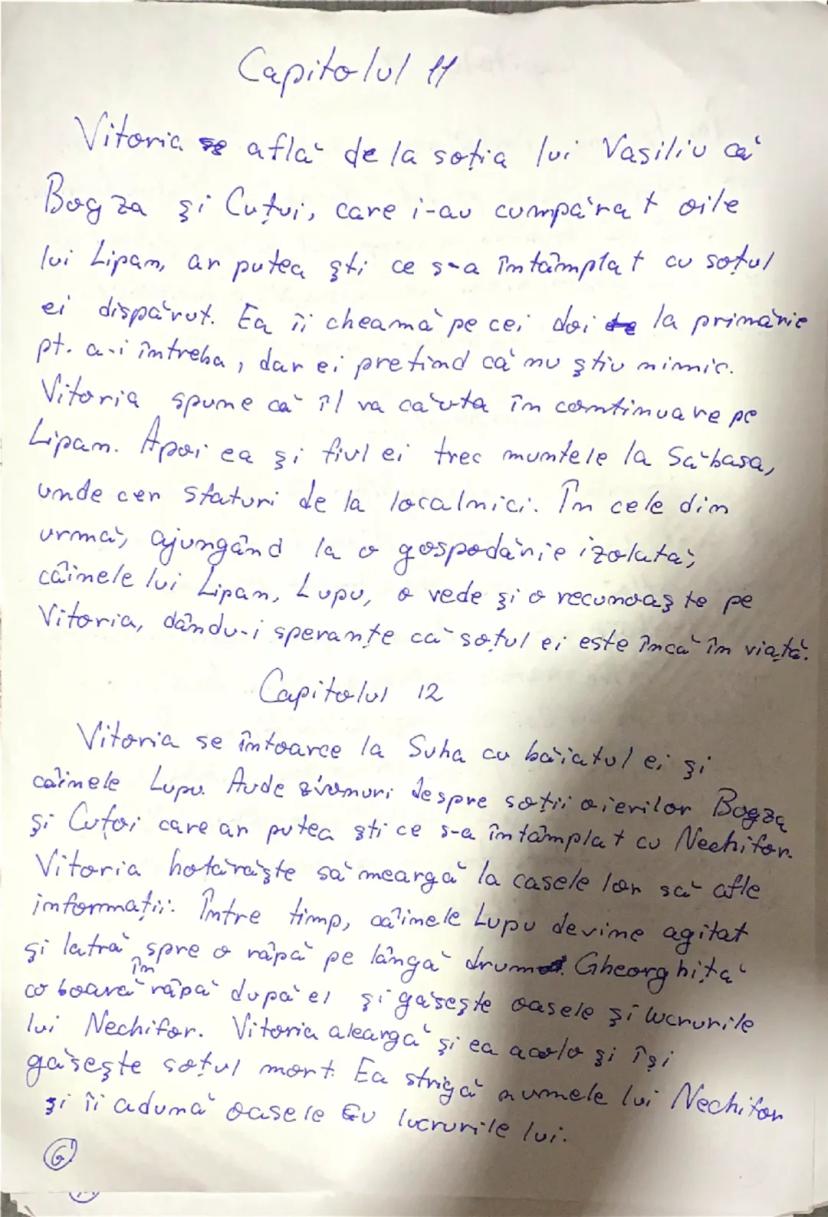 Capitolul 11
Vitoria se află de la soția lui Vasiliu că
Bogza și Cuțui, care i-au cumpărat oile
lui Lipan, ar putea ști ce s-a întâmplat cu soțul
ei dispărut. Ea îi cheamă pe cei doi de la primărie
pt. a-i întreba, dar ei pretind că nu știu nimic.
Vitoria spune că îl va căuta în continuare pe
Lipan. Apoi ea și fiul ei trec muntele la Sabasa,
unde cer staturi de la localnici. În cele din
urmă, ajungând la o gospodărie izolată,
câinele lui Lipan, Lupu, o vede și o recunoaște pe
Vitoria, dându-i speranțe că soțul ei este încă în viață.
Capitolul 12
Vitoria se întoarce la Suha cu băiatul ei și
câinele Lupu. Aude zvonuri despre soții oierilor Bogza
și Cuțoi care ar putea ști ce s-a întâmplat cu Nechifor.
Vitoria hotărăște să meargă la casele lor să afle
informații. Între timp, câinele Lupu devine agitat
și latră spre o râpă pe lângă drum. Gheorghiță
coboară în râpă după el și găsește oasele și lucrurile
lui Nechifor. Vitoria aleargă și ea acolo și își
găsește soțul mort. Ea strigă numele lui Nechifor
și îi adună oasele cu lucrurile lui.
6